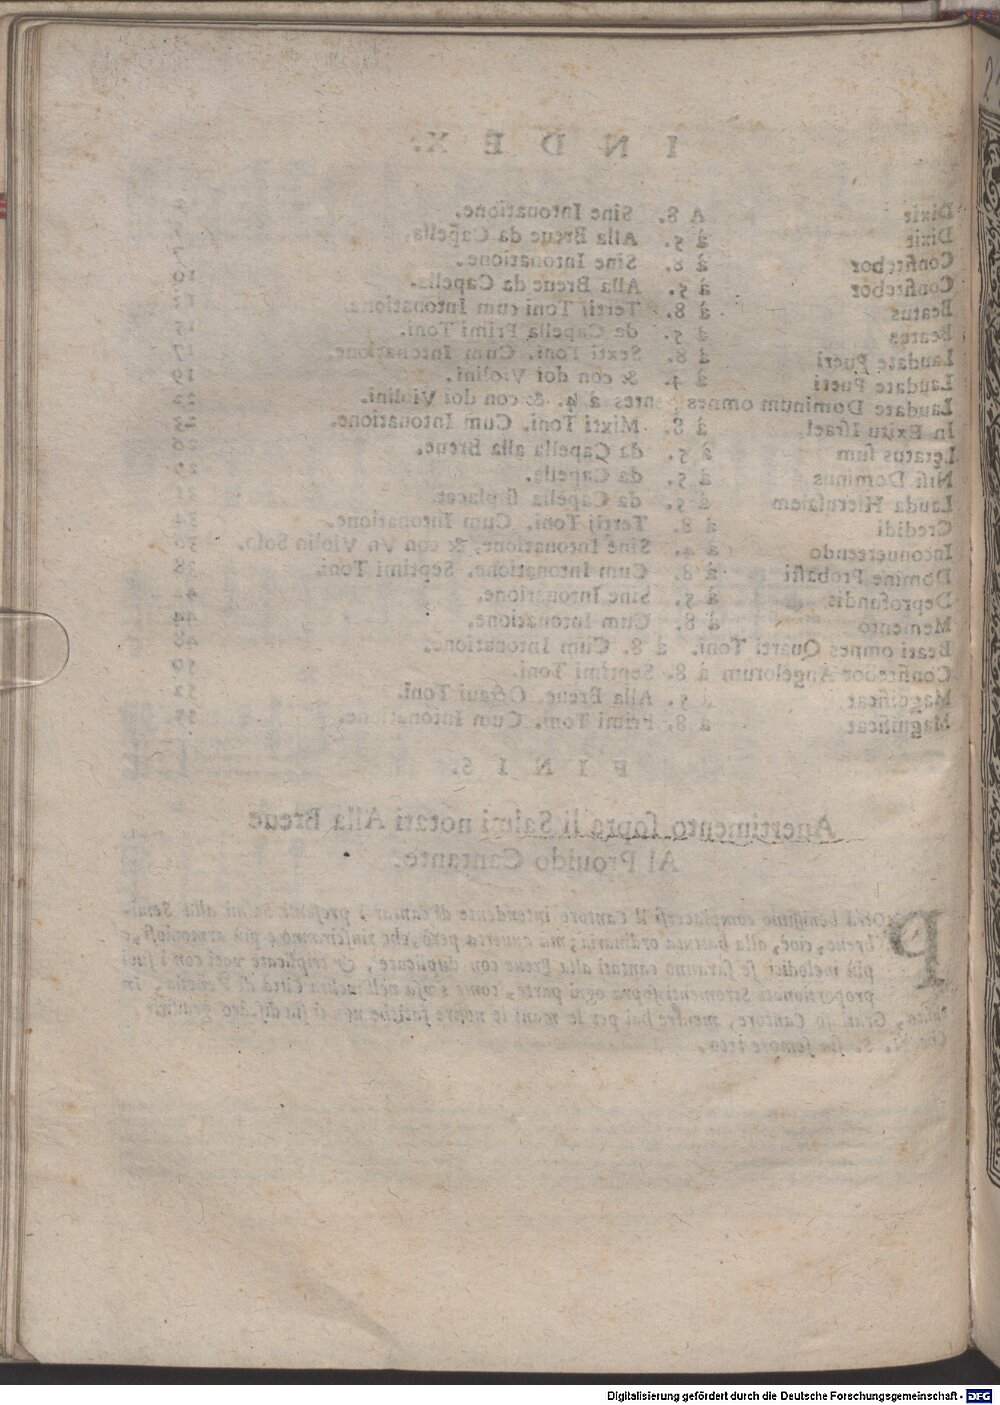 INDEX.
Dixit A 8. Sine Intonatione.
Dixit à 5. Alla Breue da Capella.
Confitebor à 8. Sine Intonatione. 7
Confitebor à 5. Alla Breue da Capella. 10
Beatus à 8. Tertij Toni cum Intonatione.
Beatus à 5. da Capella Primi Toni. 15
Laudate Pueri à 8. Sexti Toni. Cum Intonatione. 17
Laudate Pueri à 4. & con doi Violini. 19
Laudate Dominum omnes gentes à 4. & con doi Violini. 22
In Exitu Israel à 8. Mixti Toni. Cum Intonatione. 23
Lętatus sum à 5. da Capella alla Breue. 26
Nisi Dominus à 5. da Capella. 29
Lauda Hierusalem à 5. da Capella si placet. 31
Credidi à 8. Tertij Toni. Cum Intonatione. 34
Inconuertendo à 4. Sine Intonatione, & con Vn Violin Solo. 36
Domine Probasti à 8. Cum Intonatione. Septimi Toni. 38
Deprofundis à 5. Sine Intonatione.
Memento à 8. Cum Intonatione. 44
Beati omnes Quarti Toni. à 8. Cum Intonatione. 48
Confitebor Angelorum à 8. Septimi Toni. 50
Magnificat à 5. Alla Breue. Octaui Toni. 52
Magnificat à 8. Primi Toni. Cum Intonatione. 55
FINIS.
Auertimento sopra li Salmi notati Alla Breue
Al Prouido Cantante.
Potrà benissimo compiacersi il Cantore intendente di cantar i presenti Salmi alla Semi-
breue, cioè, alla battuta ordinaria; ma auuerta però, che riusciranno e più armoniosi, e
più melodici se saranno cantati alla Breue con duplicate, & triplicate voci con i suoi
proporzionati Stromenti sopra ogni parte, come s'usa nell'inclita Città di Venetia. In
Gradisci ò Cantore, mentre hai per le mani le nostre fatiche
che N. S. sia sempre teco.
Digitalisierung gefördert durch die Deutsche Forschungsgemeinschaft - DFG